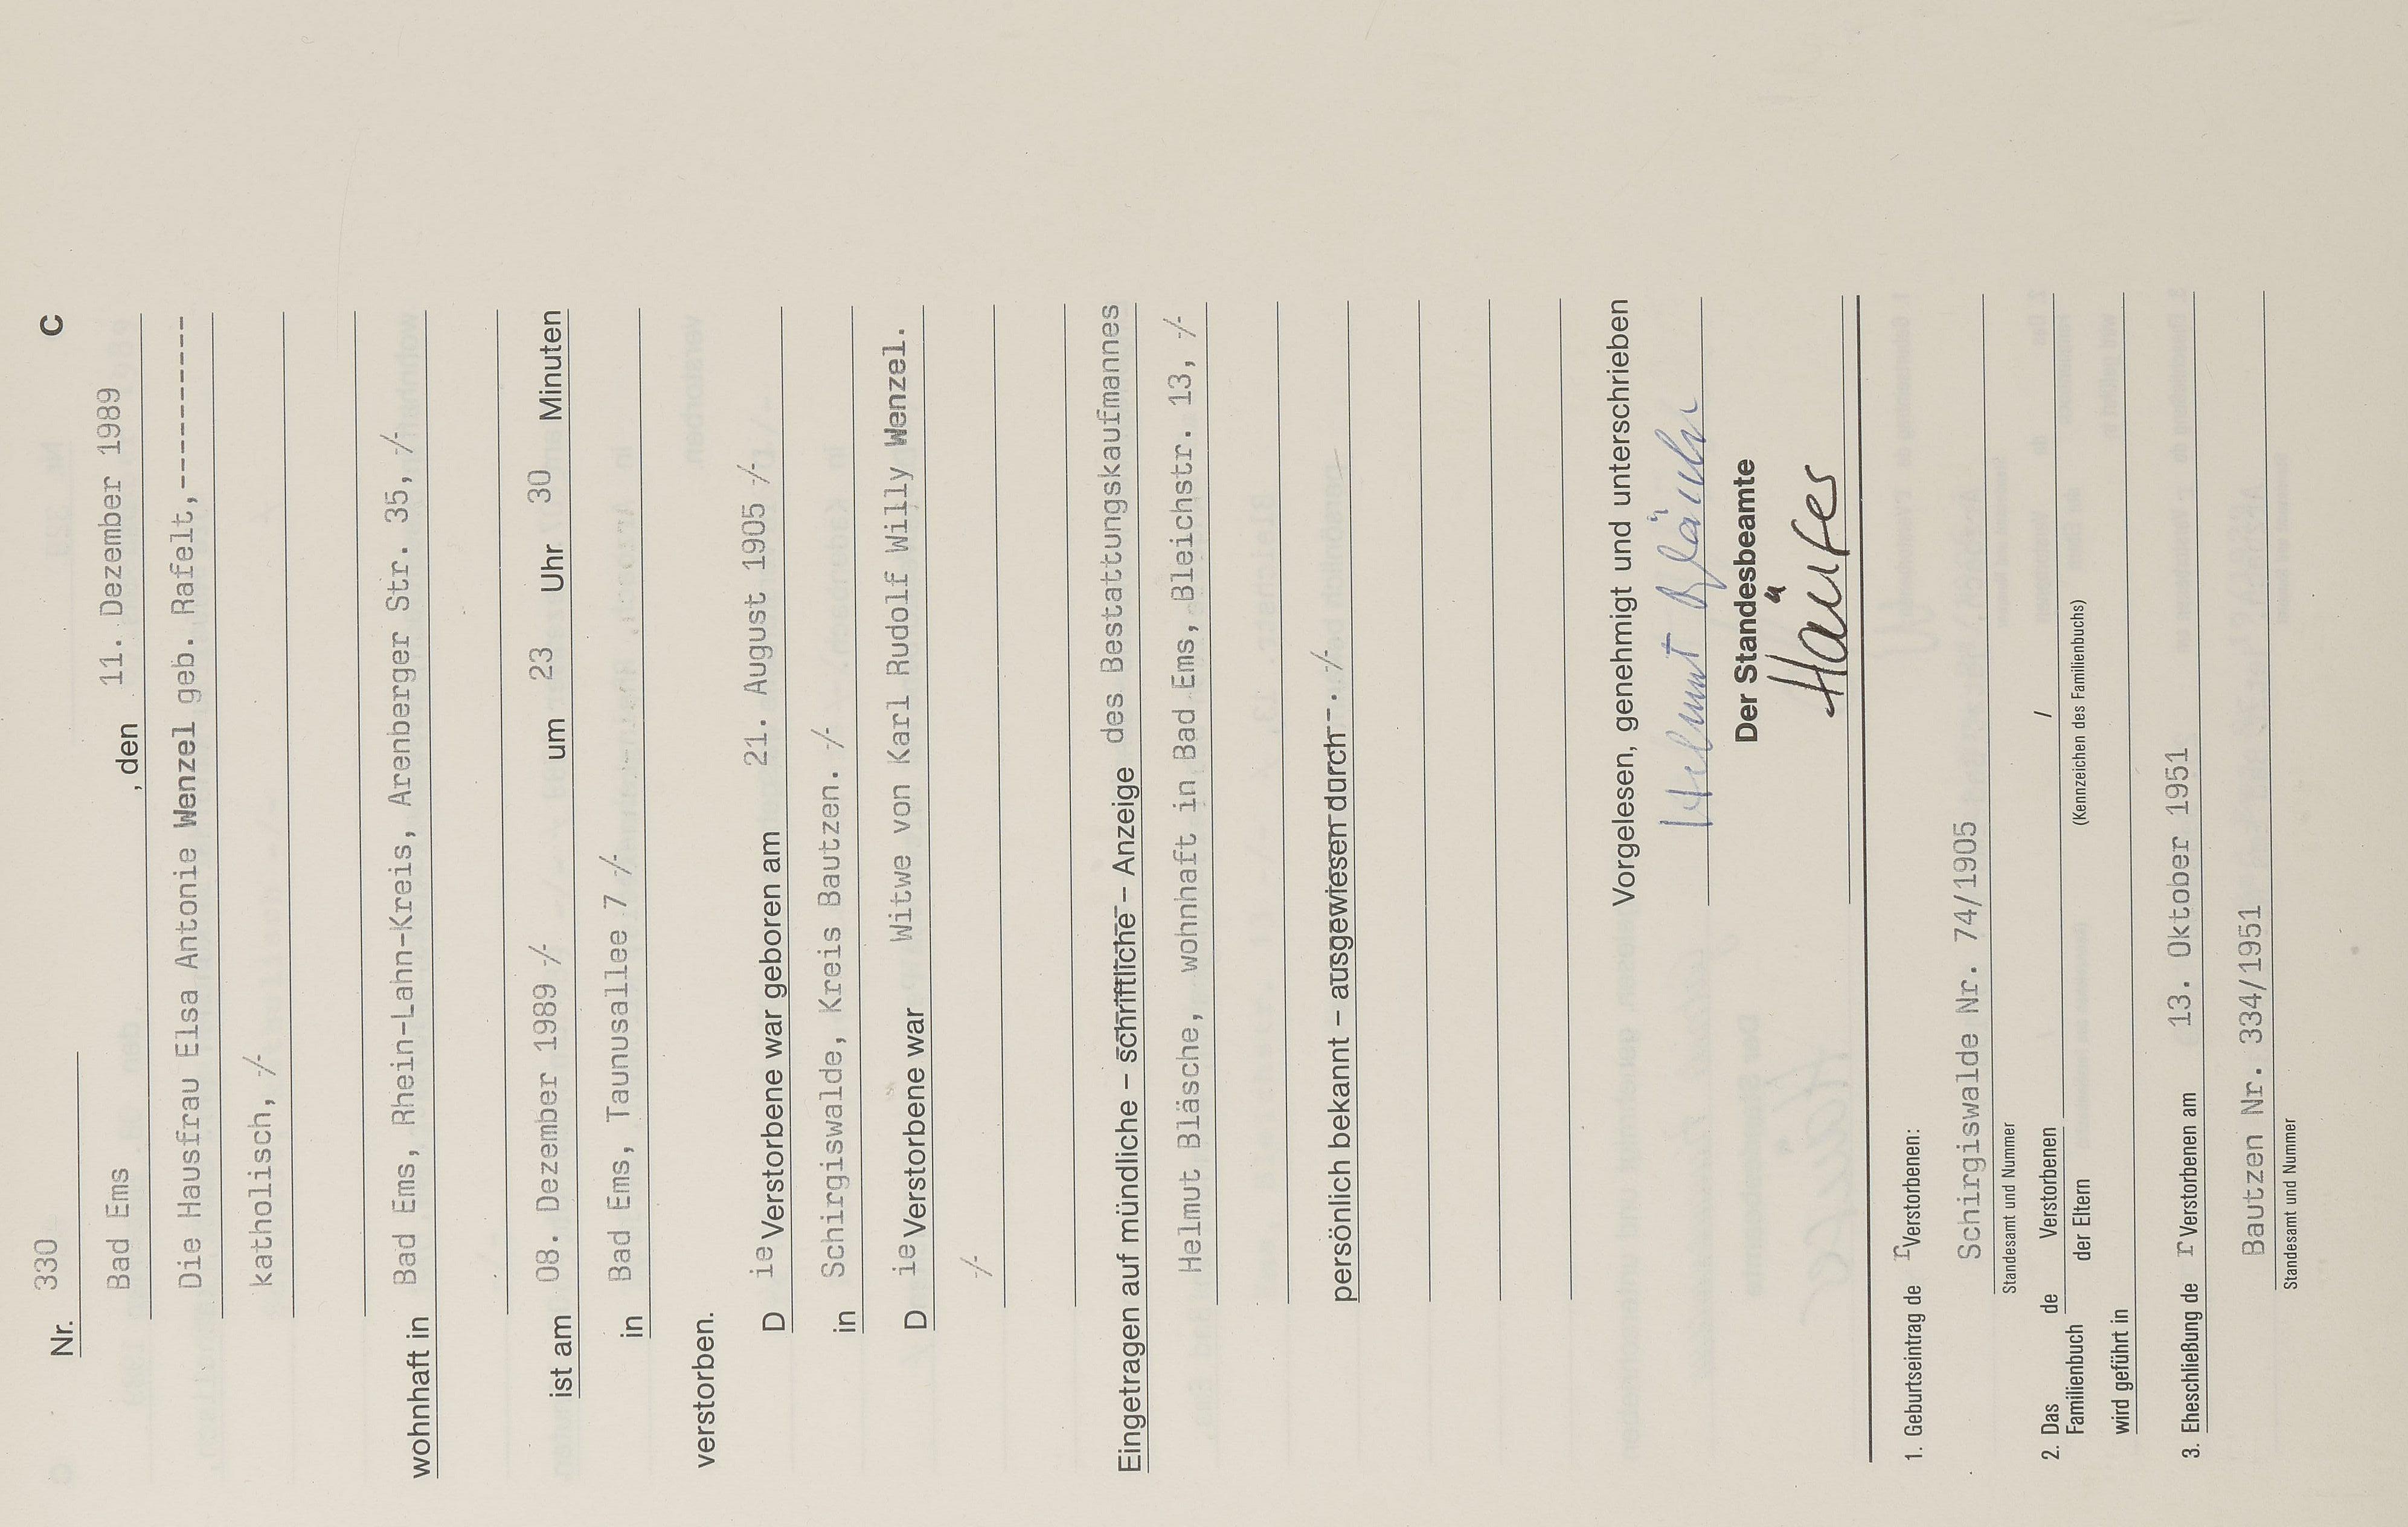 C
Nr. 330
Bad Ems , den 11. Dezember 1989
Die Hausfrau Elsa Antonie Wenzel geb. Rafelt,-----------
katholisch, -/-
wohnhaft in Bad Ems, Rhein-Lahn-Kreis, Arenberger Str. 35, -/-
ist am 08. Dezember 1989 -/- um 23 Uhr 30 Minuten
in Bad Ems, Taunusallee 7 -/-
verstorben.
D ie Verstorbene war geboren am 21. August 1905 -/-
in Schirgiswalde, Kreis Bautzen. -/-
D ie Verstorbene war Witwe von Karl Rudolf Willy Wenzel.
-/-
Eingetragen auf mündliche – schriftliche – Anzeige des Bestattungskaufmannes
Helmut Bläsche, wohnhaft in Bad Ems, Bleichstr. 13, -/-
persönlich bekannt – ausgewiesen durch -. -/-
Vorgelesen, genehmigt und unterschrieben
Helmut Bläsche
Der Standesbeamte
Häufes
1. Geburtseintrag de r Verstorbenen:
Schirgiswalde Nr. 74/1905
Standesamt und Nummer
2. Das Familienbuch de Verstorbenen /
der Eltern (Kennzeichen des Familienbuchs)
wird geführt in
3. Eheschließung de r Verstorbenen am 13. Oktober 1951
Bautzen Nr. 334/1951
Standesamt und Nummer